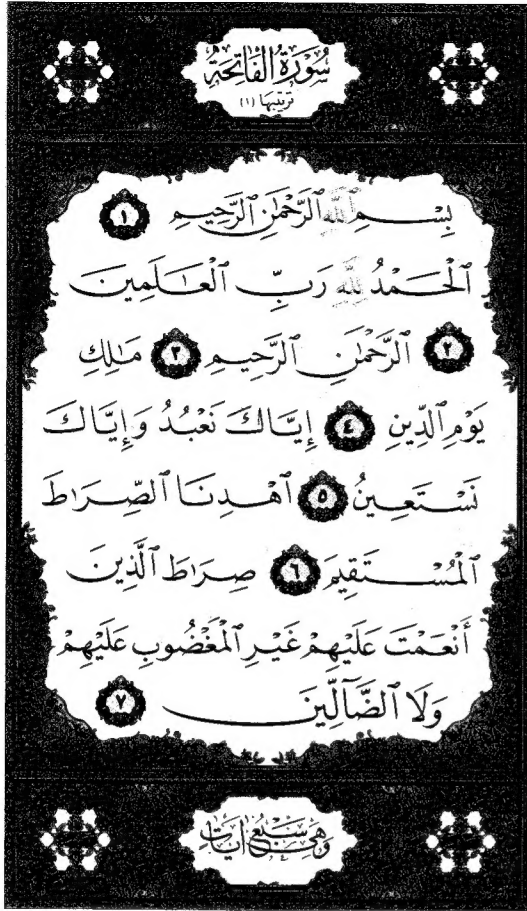 سُورَةُ الْفَاتِحَةِ
ترتيبها (١)
بِسْمِ ٱللَّهِ ٱلرَّحْمَٰنِ ٱلرَّحِيمِ ١
ٱلْحَمْدُ لِلَّهِ رَبِّ ٱلْعَٰلَمِينَ
٢ ٱلرَّحْمَٰنِ ٱلرَّحِيمِ ٣ مَٰلِكِ
يَوْمِ ٱلدِّينِ ٤ إِيَّاكَ نَعْبُدُ وَإِيَّاكَ
نَسْتَعِينُ ٥ ٱهْدِنَا ٱلصِّرَٰطَ
ٱلْمُسْتَقِيمَ ٦ صِرَٰطَ ٱلَّذِينَ
أَنْعَمْتَ عَلَيْهِمْ غَيْرِ ٱلْمَغْضُوبِ عَلَيْهِمْ
وَلَا ٱلضَّآلِّينَ ٧
وَهِيَ سَبْعُ آيَاتٍ